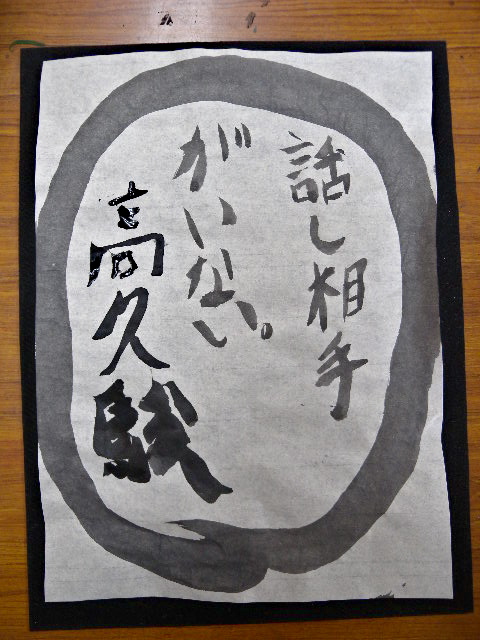 話し相手
がいない。
高久駿